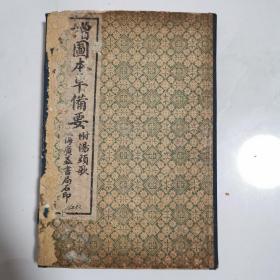 增圖本草備要
附湯頭歌
上海廣益書局石印